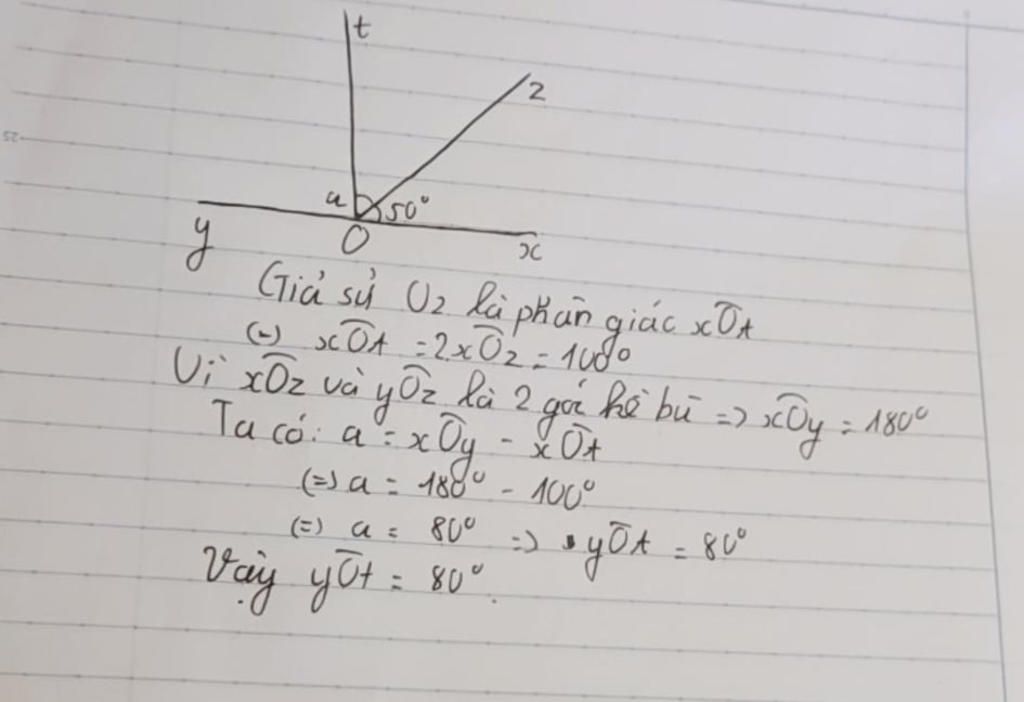 t
z
a 50°
y O x
Giả sử Oz là phân giác xOt
(=) xOt = 2xOz = 100°
Vì xOz và yOz là 2 góc kề bù => xOy = 180°
Ta có: a = xOy - xOt
(=) a = 180° - 100°
(=) a = 80° => yOt = 80°
Vậy yOt = 80°.
25